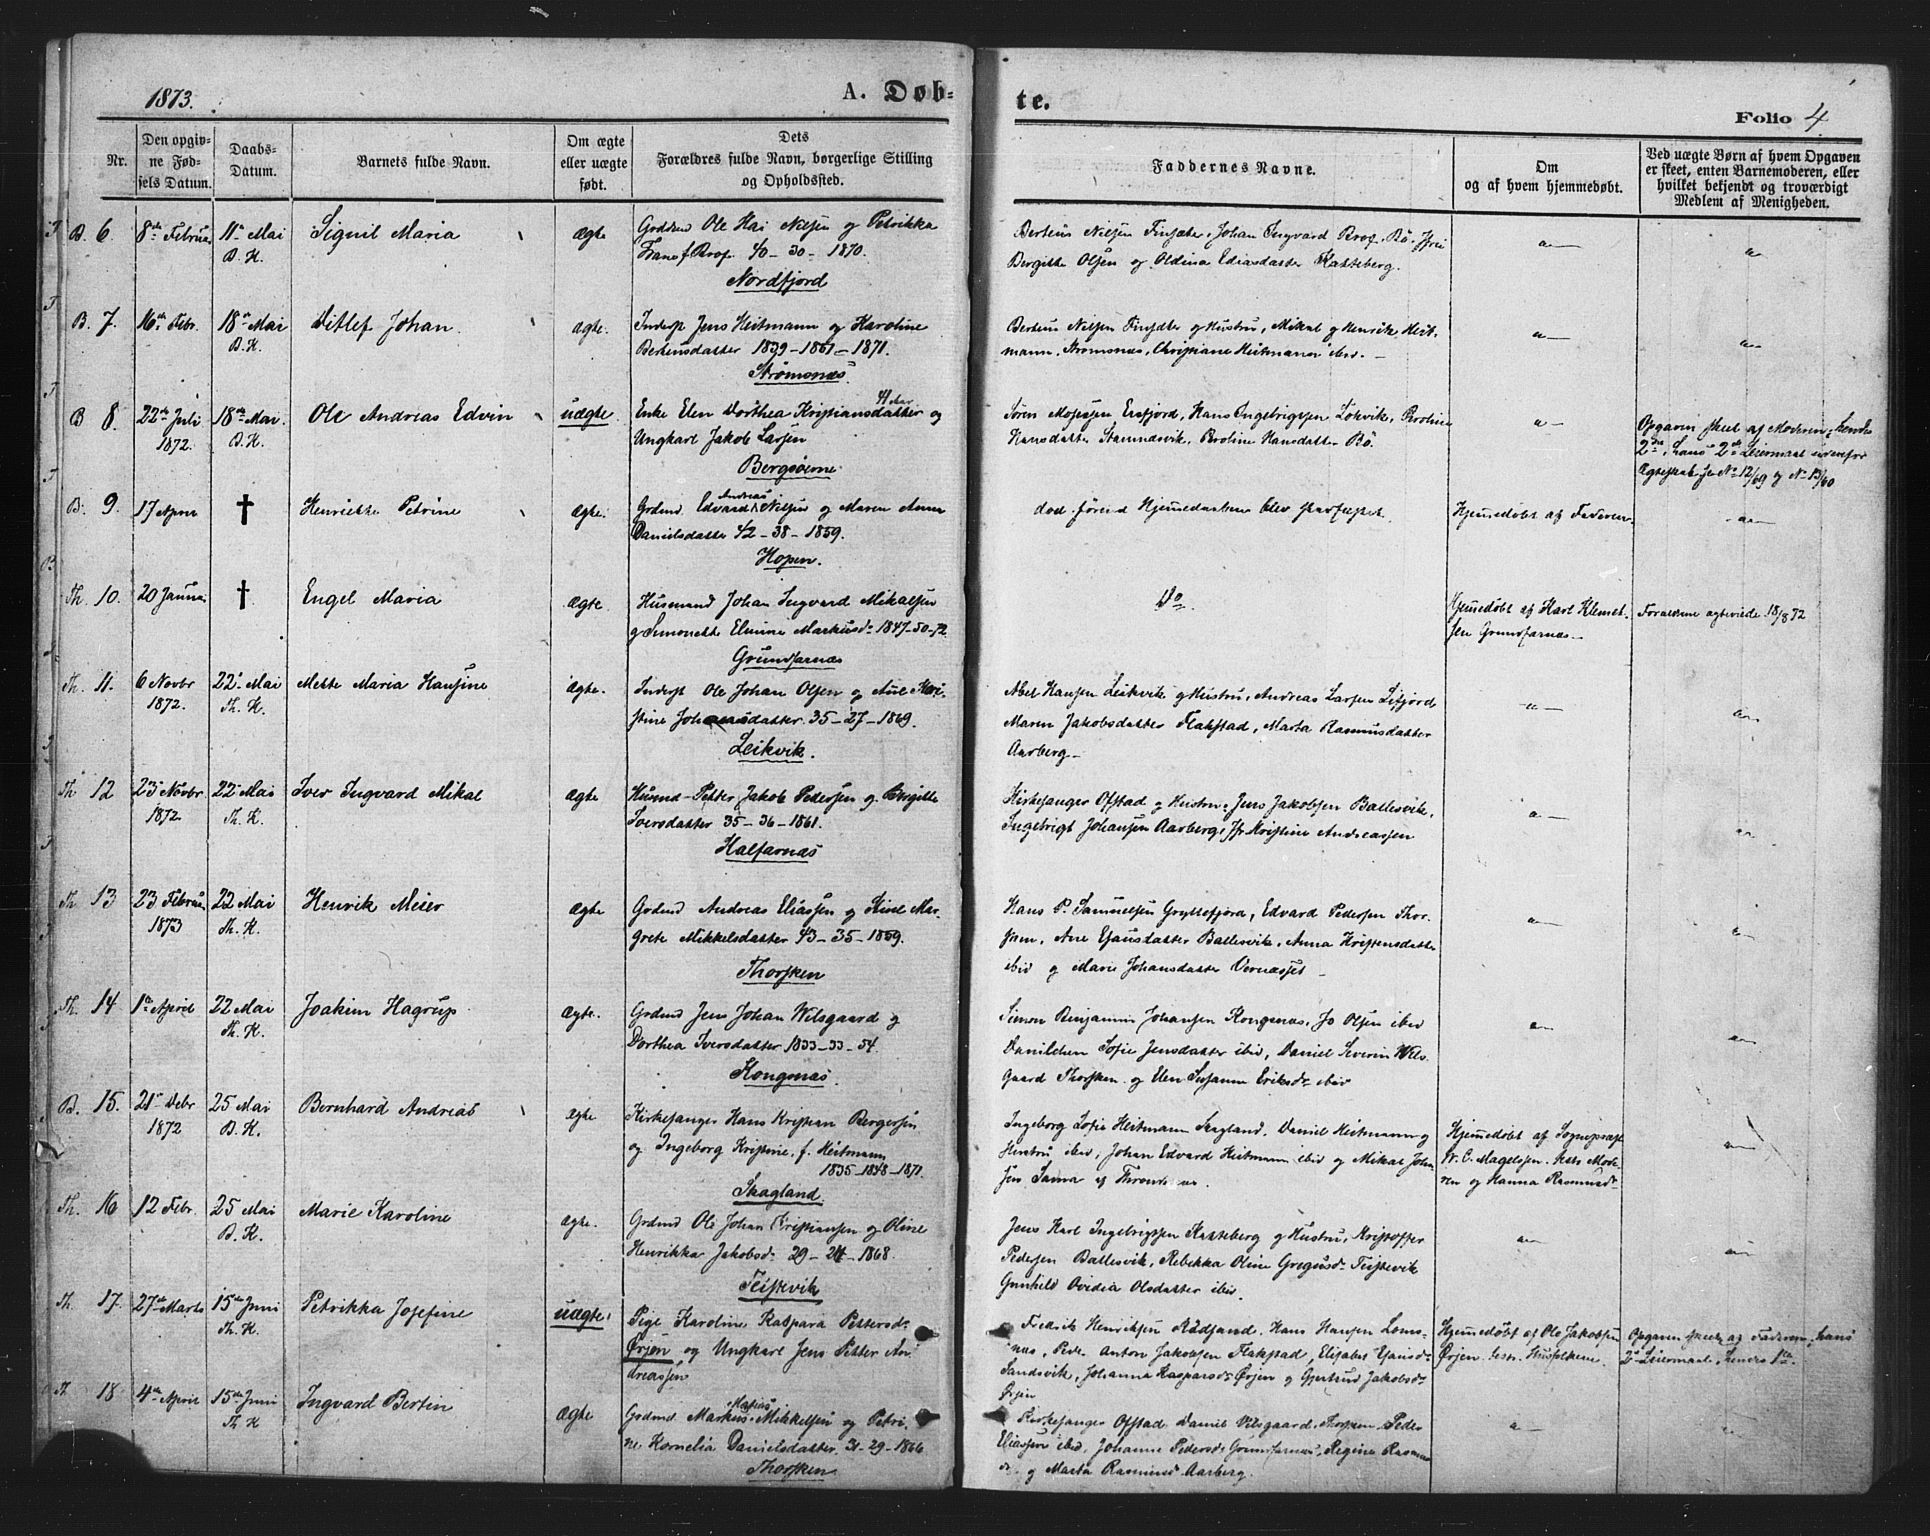 1873.
A. Døb-
te.
Folio 4
Nr.
Den opgiv-
ne Fød-
sels Datum.
Daabs-
Datum.
Barnets fulde Navn.
Om ægte
eller uægte
født.
Dets
Forældres fulde Navn, borgerlige Stilling
og Opholdssted.
Faddernes Navne.
Om
og af hvem hjemmedøbt.
Ved uægte Børn af hvem Opgaven
er skeet, enten Barnemoderen, eller
hvilket bekjendt og troværdigt
Medlem af Menigheden.
B. 6 8de Februar 11te Mai Signil Maria ægte
B. K.
Grdmd Ole Hai Nilsen og Petrikka
40 - 30 - 1870.
Nordfjord
Berteus Nilsen Finsæter, Johan Ingvard
Bergitte Olsen og Oldina Eliasdatter Katteberg.
B. 7. 16de Febr. 18de Mai Ditlef Johan. ægte.
B. K.
Inderst Jens Heitmann og Karoline
Berteusdatter 1839 - 1851 - 1871.
Strømsnæs.
Berteus Nilsen Finsæter og Hustru, Mikal og Henrik Heit-
mann, Strømsnæs, Christiane Heitmann ibid. -
B 8. 22de Juli 18de Mai. Ole Andreas Edvin uægte.
1872. B. K.
41 Aar
Enke Elen Dorthea Kristiansdatter og
Ungkarl Jakob Larsen
Bergsøerne
Søren Mosessen Ersfjord, Hans Ingebrigtsen Løkvik, Peroline
Hansdatter Stamnesvik, Peroline Hansdatter Bø.
Opgaven skeet af Moderen, hendes
2det, hans 2det Leiermaal udenfor
Ægteskab, se No 12/69 og No 13/60
B. 9. 17 April † Henriette Petrine ægte.
Andreas
Grdmd. Edvard Nilsen og Maren Anna
Danielsdatter 42 - 38 - 1859.
Hopen.
død førend Hjemmedaaben blev stadfæstet.
Hjemmedøbt af Faderen
Th. 10. 20 Januar † Engel Maria ægte.
Husmand Johan Ingvard Mikalsen
og Simonette Elmine Markusd: 1847-50-72.
Grundfarnæs
Do.
Hjemmedøbt af Karl Klemet-
sen Grundfarnæs -
Forældrene ægteviede 18/8 72
Th. 11. 6 Novbr 22de Mai Mette Maria Hansine ægte.
1872. Th. K.
Inderst Ole Johan Olsen og Ane Kri-
stine datter 35 - 27 - 1869.
Leikvik.
Abel Hansen Leikvik og Hustru, Andreas Larsen Lefjord
Maren Jakobsdatter Flakstad, Marta Rasmusdatter
Aarberg -
Th 12 23 Novbr 22de Mai Iver Ingvard Mikal ægte
1872 Th. K.
Husmd - Petter Jakob Pedersen og Bergitte
Iversdatter 35 - 36 - 1861.
Halfarnæs
Kirkesanger Ofstad og Hustru, Jens Jakobsen Ballesvik,
Ingebrigt Johansen Aarberg, Jfr Kristine Andreassen
Th. 13 23 Februar 22 Mai Henrik Meier ægte
1873 Th. K.
Grdmd Andreas Eliassen og Mar-
grete Mikkelsdatter 43 - 35 - 1859.
Thorsken
Hans P. Samuelsen Gryllefjord, Edvard Pedersen Thor-
sken, Ane datter Ballesvik, Anna Kristensdatter
ibid og Marie Johansdatter -
Th. 14 1te April 22 Mai Joakim Hagrup ægte.
Th. K.
Grdmd Jens Johan Wilsgaard og
Dorthea Iversdatter 1833 - 33 - 54.
Kongsnæs.
Simon Benjamin Johansen Kongsnæs, Jo Olsen ibid
Danilchen Sofie Jensdatter ibid, Daniel Severin Wils-
gaard Thorsken og Elen Susanna Eriksd: ibid
B. 15. 21de Debr 25 Mai Bernhard Andreas ægte
1872 B. K.
Kirkesanger Hans Kristian Bergersen
og Ingeborg Kristine, f. Heitmann
1835 - 1848 - 1871.
Skagland.
Ingeborg Sofie Heitmann Skagland, Daniel Heitmann og
Hustru ibid, Johan Edvard Heitmann ibid og Mikal Johan-
sen
Hjemmedøbt af Sognepræst
Magelssen. Mode-
ren og Hanna Rasmusd:
Th. 16 12 Febr. 25 Mai Marie Karoline ægte.
B. K.
Grdmd Ole Johan Kristiansen og Oline
Henrikka Jakobsd: 29 - 24 - 1868.
Teistevik
Jens Karl Ingebrigtsen Katteberg og Hustru, Kristoffer
Pedersen Ballesvik, Rebekka Oline Gregusd: Teistevik
Gunhild Ovidia Olsdatter ibid.
Th. 17. 27de Marts 15de Juni Petrikka Josefine uægte.
Th. K.
Pige Karoline Kaspara Pettersd:
Ørjen og Ungkarl Jens Petter An-
dreassen
Fredrik Henriksen Rødsand, Hans Hansen Loms-
næs, Peder Anton Jakobsen Flakstad, Elisabet
Sandsvik, Johanna Kaspersd: Ørjen og Gjertrud Jakobsd:
Ørjen
Hjemmedøbt af Ole Jakobsen
Ørjen. Husfolkene.
Opgaven skeet af Faderen, hans
2det Leiermaal, hendes 1te.
Th 18 4de April 15de Juni Ingvard Bertin ægte
Th K
Matias
Grdmd. Markus Mikkelsen og Petri-
ne Kornelia Danielsdatter, 31 - 29 - 1866
Thorsken
Kirkesanger Ofstad Daniel Vilsgaard Thorsken, Peder
Eliassen ibid, Johanne Pedersd: Grundfarnæs, Regine Rasmus-
d: og Marta Rasmusd: Aarberg.